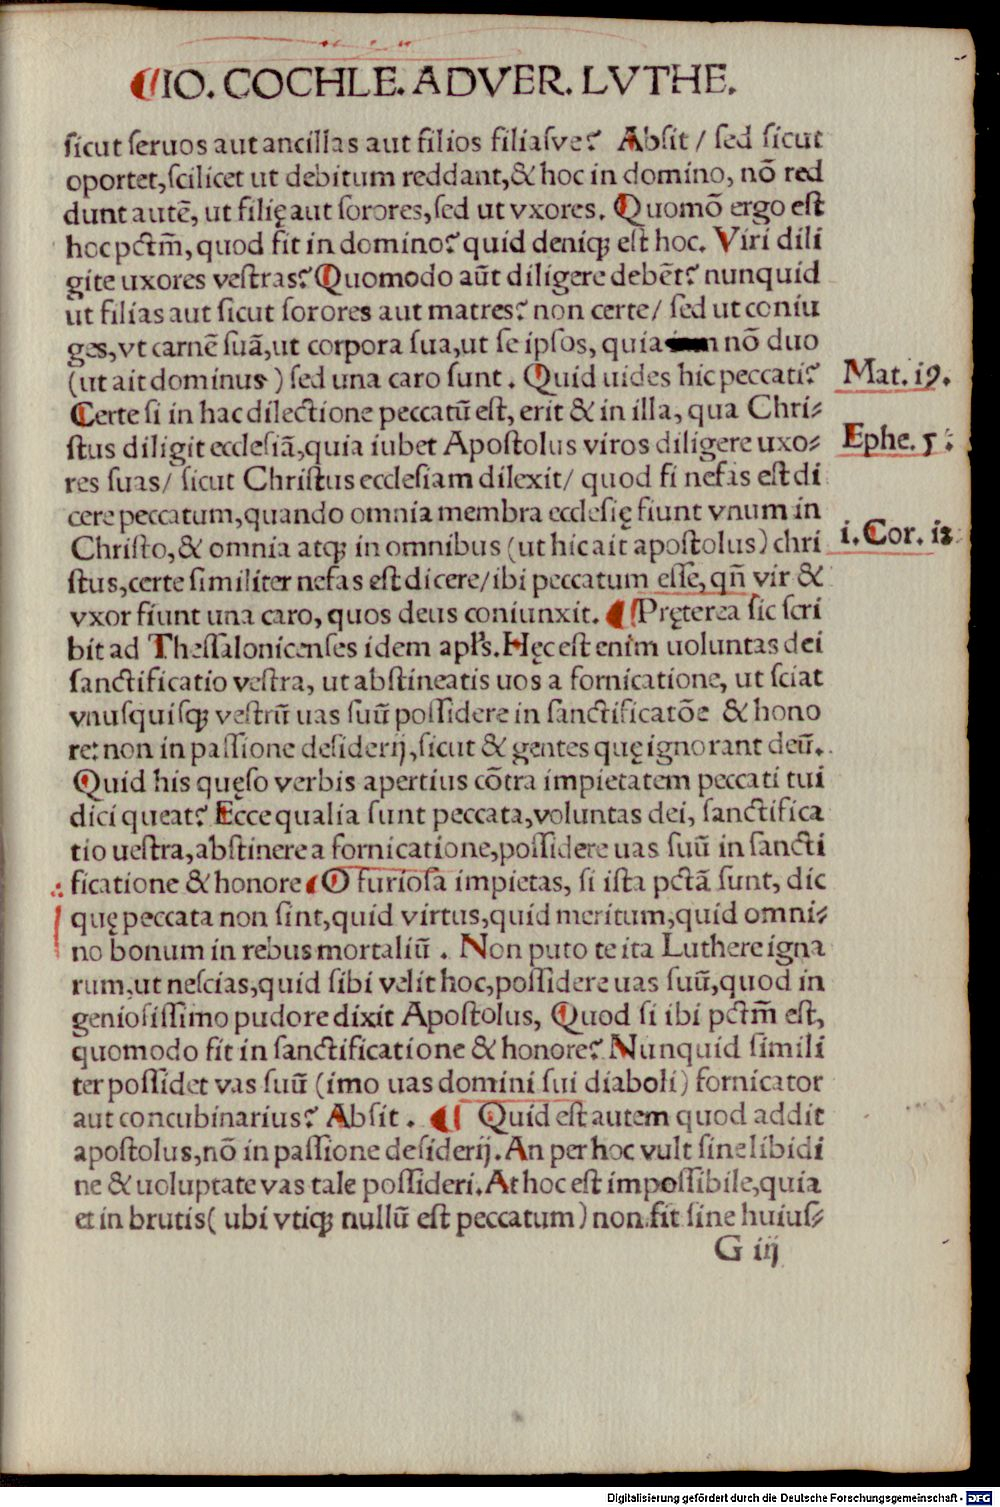 IO. COCHLE. ADVER. LVTHE.
sicut seruos aut ancillas aut filios filiasve? Absit / sed sicut
oportet, scilicet ut debitum reddant, & hoc in domino, nō red
dunt autē, ut filię aut sorores, sed ut vxores. Quomō ergo est
hoc pctm̄, quod fit in domino? quid deniqꝫ est hoc. Viri dili
gite uxores vestras? Quomodo aūt diligere debēt? nunquid
ut filias aut sicut sorores aut matres? non certe / sed ut coniu
ges, vt carnē suā, ut corpora sua, ut se ipsos, quia nō duo
(ut ait dominus) sed una caro sunt. Quid uides hic peccati?
Mat. i9.
Certe si in hac dilectione peccatū est, erit & in illa, qua Chri⸗
stus diligit ecclesiā, quia iubet Apostolus viros diligere uxo⸗
Ephe. 5.
res suas / sicut Christus ecclesiam dilexit / quod si nefas est di
cere peccatum, quando omnia membra ecclesię fiunt vnum in
Christo, & omnia atqꝫ in omnibus (ut hic ait apostolus) chri
i. Cor. i2
stus, certe similiter nefas est dicere / ibi peccatum esse, qñ vir &
vxor fiunt una caro, quos deus coniunxit. ¶ Pręterea sic scri
bit ad Thessalonicenses idem apl's. Hęc est enim uoluntas dei
sanctificatio vestra, ut abstineatis uos a fornicatione, ut sciat
vnusquisqꝫ vestrū uas suū possidere in sanctificatōe & hono
re: non in passione desiderij, sicut & gentes quę ignorant deū.
Quid his quęso verbis apertius cōtra impietatem peccati tui
dici queat? Ecce qualia sunt peccata, voluntas dei, sanctifica
tio uestra, abstinere a fornicatione, possidere uas suū in sancti
ficatione & honore O furiosa impietas, si ista pctā sunt, dic
quę peccata non sint, quid virtus, quid meritum, quid omni⸗
no bonum in rebus mortaliū. Non puto te ita Luthere igna
rum, ut nescias, quid sibi velit hoc, possidere uas suū, quod in
geniosissimo pudore dixit Apostolus, Quod si ibi pctm̄ est,
quomodo fit in sanctificatione & honore? Nunquid simili
ter possidet vas suū (imo uas domini sui diaboli) fornicator
aut concubinarius? Absit. ¶ Quid est autem quod addit
apostolus, nō in passione desiderij. An per hoc vult sine libidi
ne & uoluptate vas tale possideri. At hoc est impossibile, quia
et in brutis ( ubi vtiqꝫ nullū est peccatum) non fit sine huius⸗
G iij
Digitalisierung gefördert durch die Deutsche Forschungsgemeinschaft - DFG